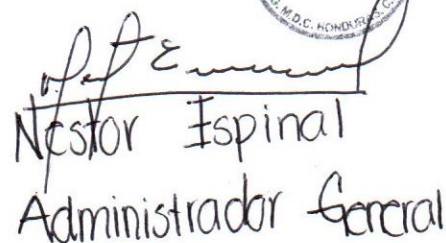 M.D.C. HONDURAS, C.
Nestor Espinal
Administrador General